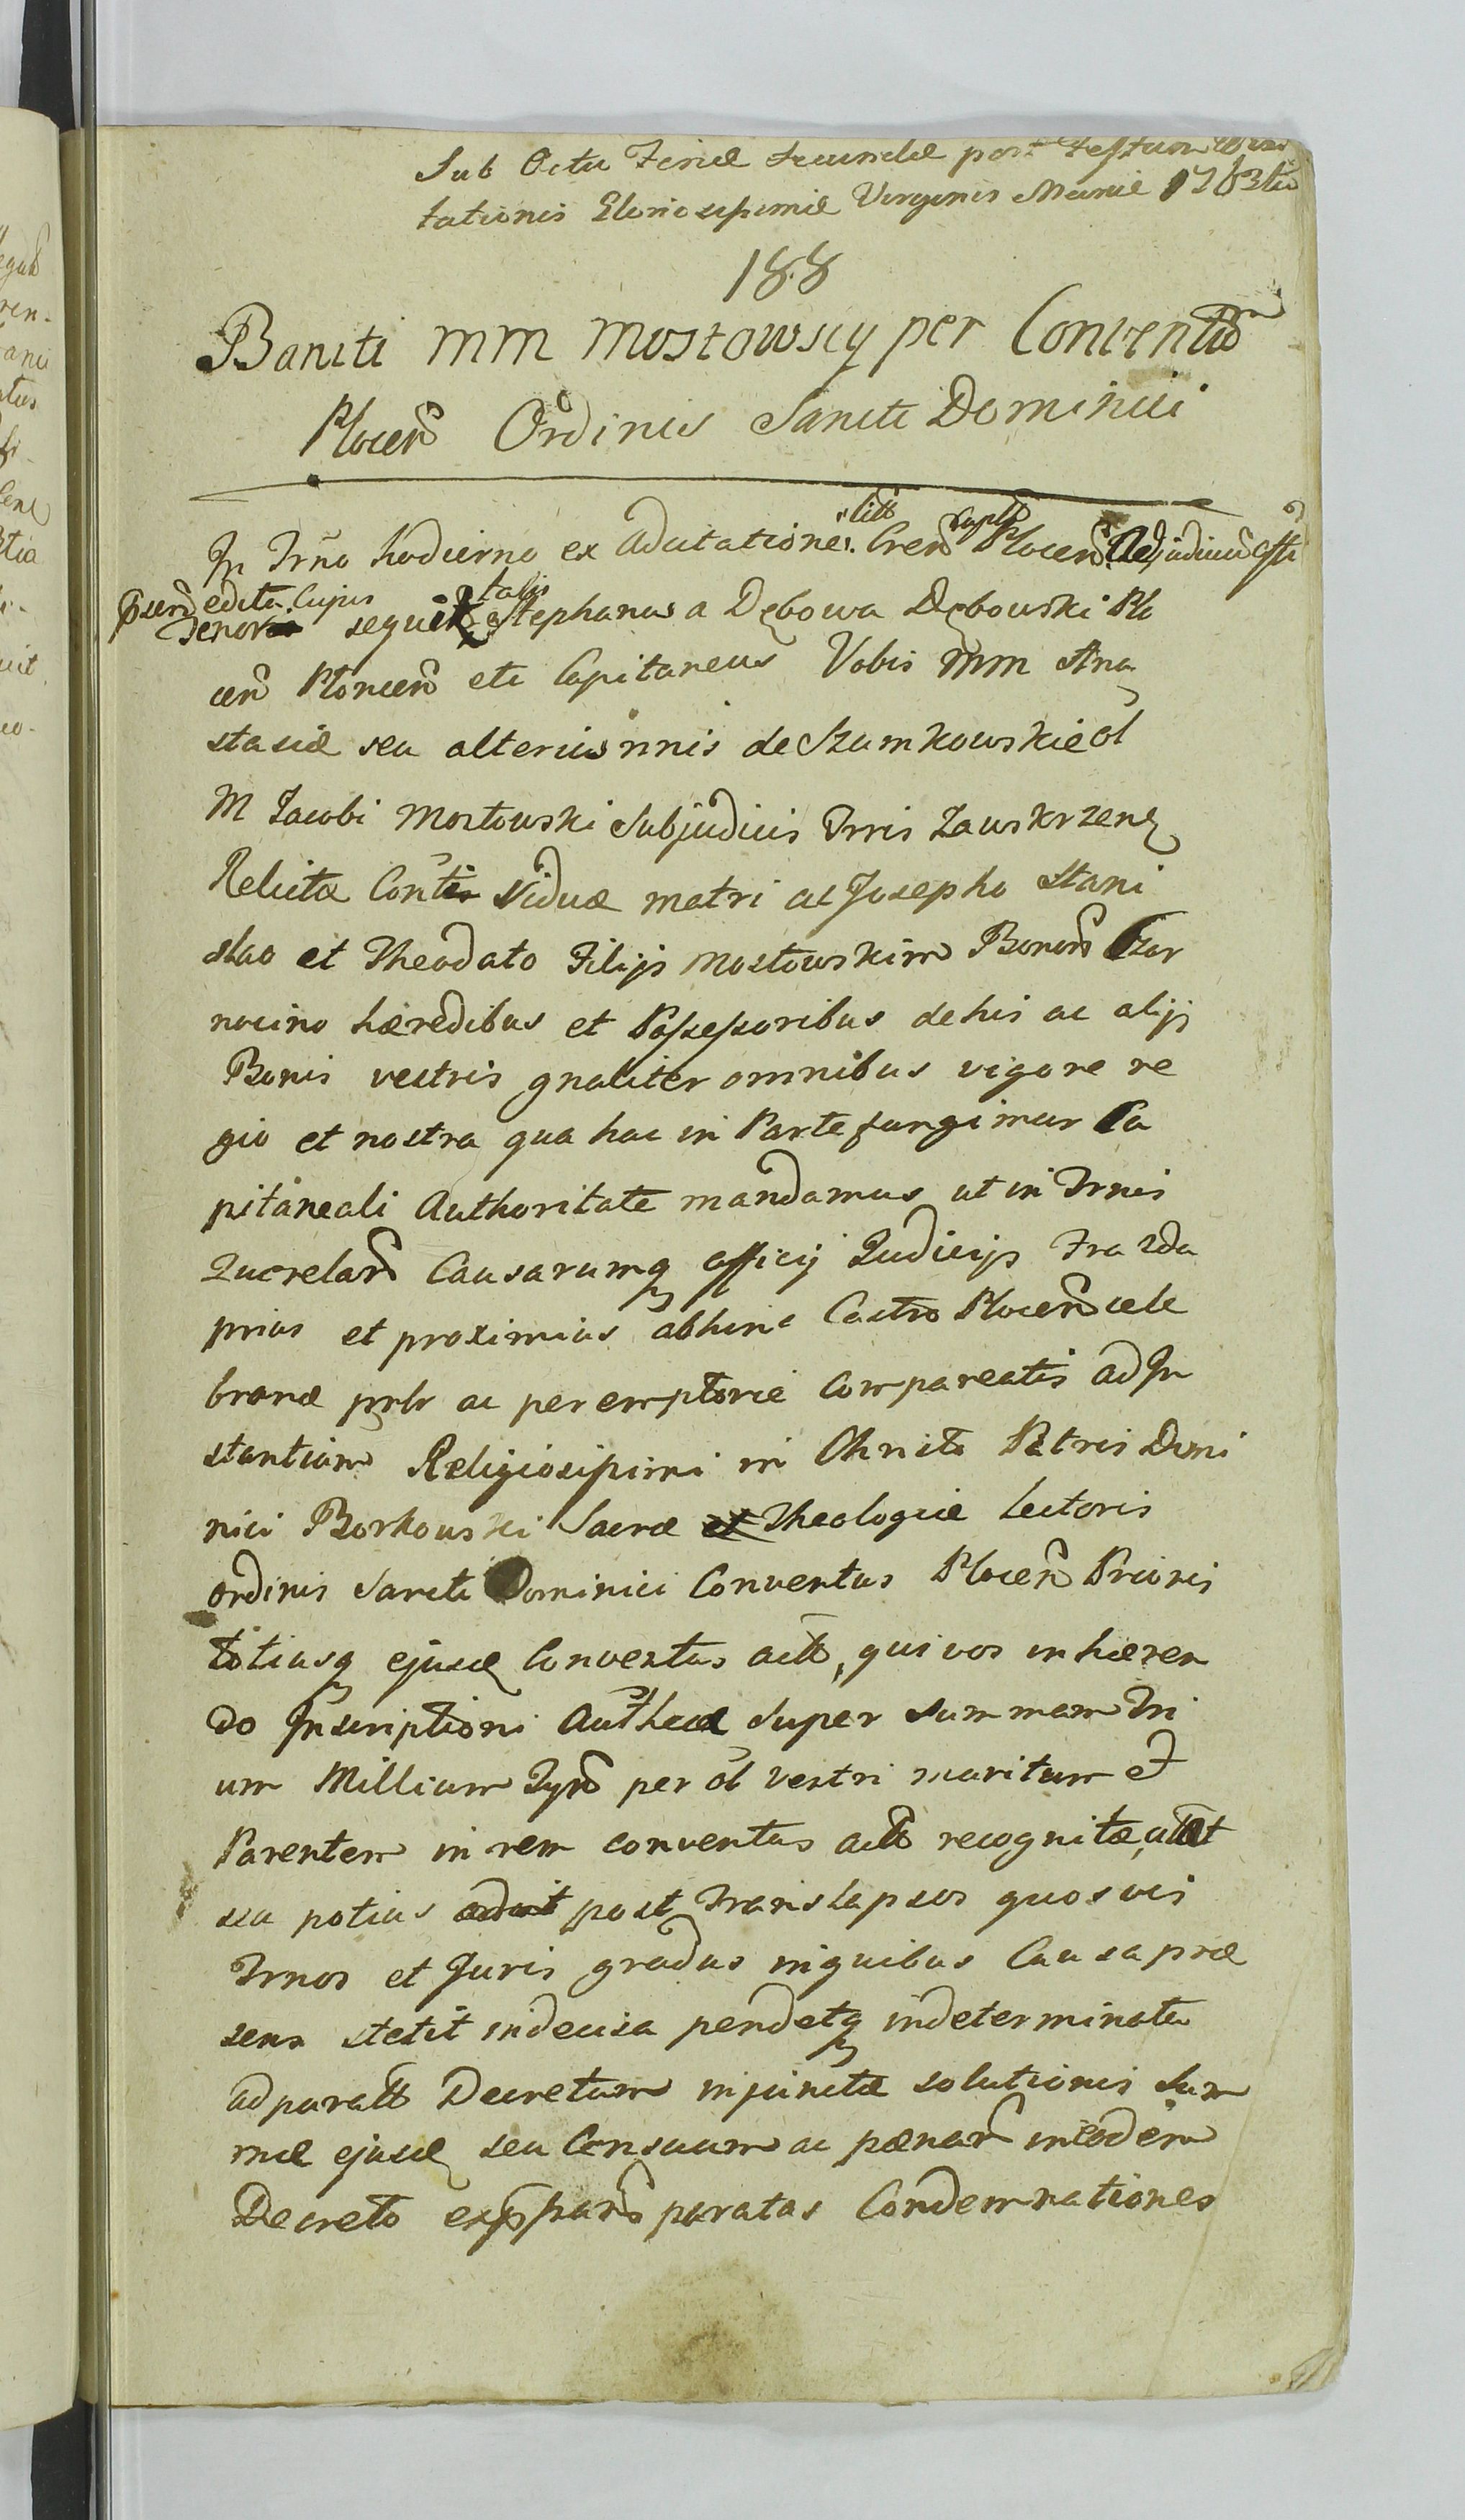 Sub Actu Feriae secundae post Festum Visi
tationis Gloriosissimae Virginis Mariae 1763tio
188
Baniti MM Mostowscy per Conventum
Plocen Ordinis Sancti Dominici
In Trno hodierno ex Adcitatione litt Cren Captl Plocen Adjudicium Offii
pscen edita Cujus
Tenor sequitr talis Stephanus a Dębowa Dębowski Plo
cen Ploncen etc Capitaneus Vobis MM Ana
stasiae seu alterius nnis de Szumkowskie ol
M Jacobi Mostowski Subjudicis Trris Zawskrzen
Relicta Conti Viduae matri ac Josepho Stani
slao et Theodato Filijs Mostowskim Bonom Czar
nocino haeredibus et Possessoribus de his ac alijs
Bonis vestris gnaliter omnibus vigore re
gio et nostra qua hac in Parte fungimur Ca
pitaneali Authoritate mandamus ut in Trnis
Querelarum Causarumq officij Judicijs Fra 2da
prius et proximius abhinc Castro Plocen cele
branae prlr ac peremptorie Compareatis ad In
stantiam Religiosissimi in Christo Patris Domi
nici Borkowski Sacrae Theologiae Lectoris
ordinis Sancti Dominici Conventus Plocen Prioris
totiusq ejusd Conventus act, qui vos inhaeren
do Inscriptioni Authcae Super summam Tri
um Millium Tyn per ol vestri maritum et
Parentem in rem conventus act recognitae, citat
seu potius adcit post Translapsos quosvis
Trnos et Juris gradus in quibus Causa prae
sens stetit indecisa pendetq indeterminata
ad paratt Decretum injunctae solutionis Sum
mae ejusd seu Censuum ac paenarum in eodem
Decreto expssarum paratas Condemnationes